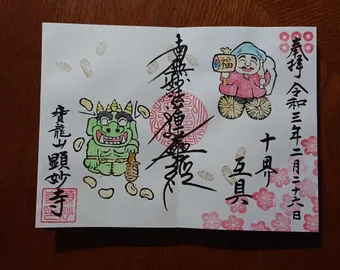 奉拝 令和三年二月二十六日
十界
互具
福
南無妙法蓮華経
寶龍山 顕妙寺